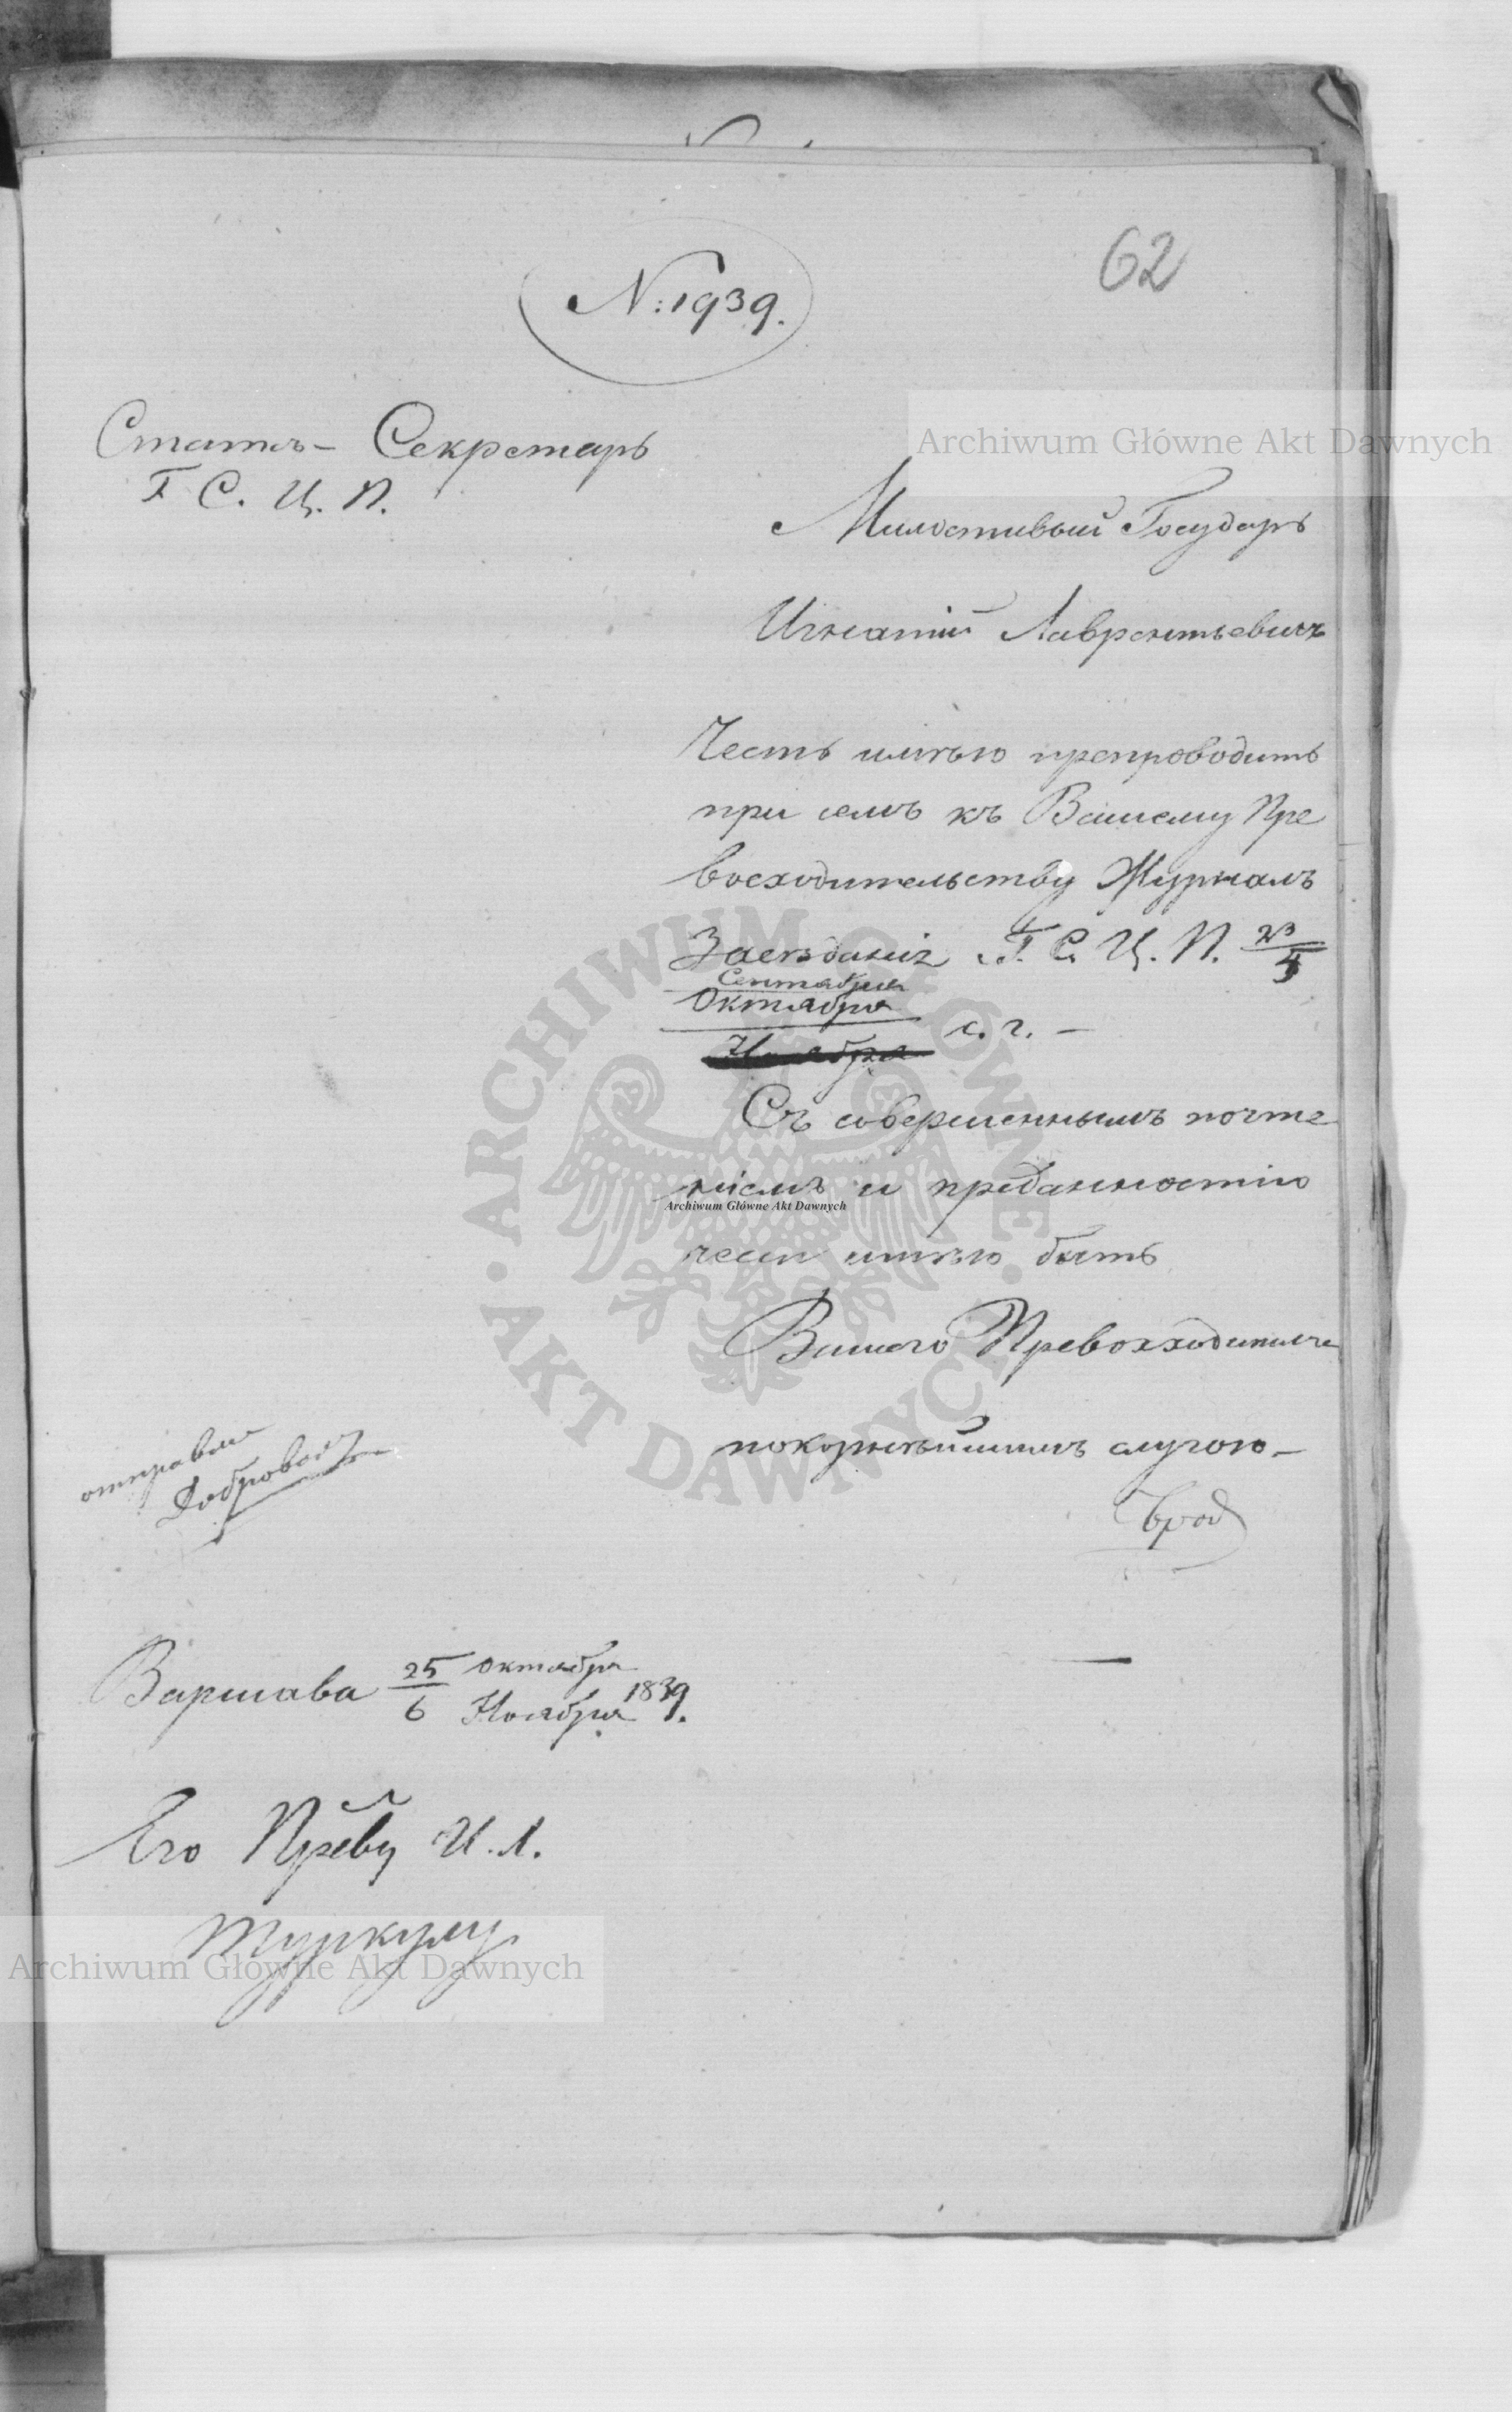 62
N: 1939.
Статсъ- Секретарь
Г. С. Ц. П.
Милостивый Государь
Игнатій Лаврентьевичъ
Честь имѣю препроводить
при семъ къ Вашему Пре
восходительству Журналъ
Засѣданія Г. С. Ц. П. 23/5
Сентября
Октября с. г. —
Ноября
Съ совершеннымъ почте
ніемъ и преданностію
честь имѣю быть
Вашего Превосходительст
покорнѣйшимъ слугою —
отправлен
Варшава 25/6 Октября
Ноября 1839.
Его Прев-у И. Л.
Туркулу
Archiwum Główne Akt Dawnych
Archiwum Główne Akt Dawnych
Archiwum Główne Akt Dawnych
ARCHIWUM GŁÓWNE AKT DAWNYCH